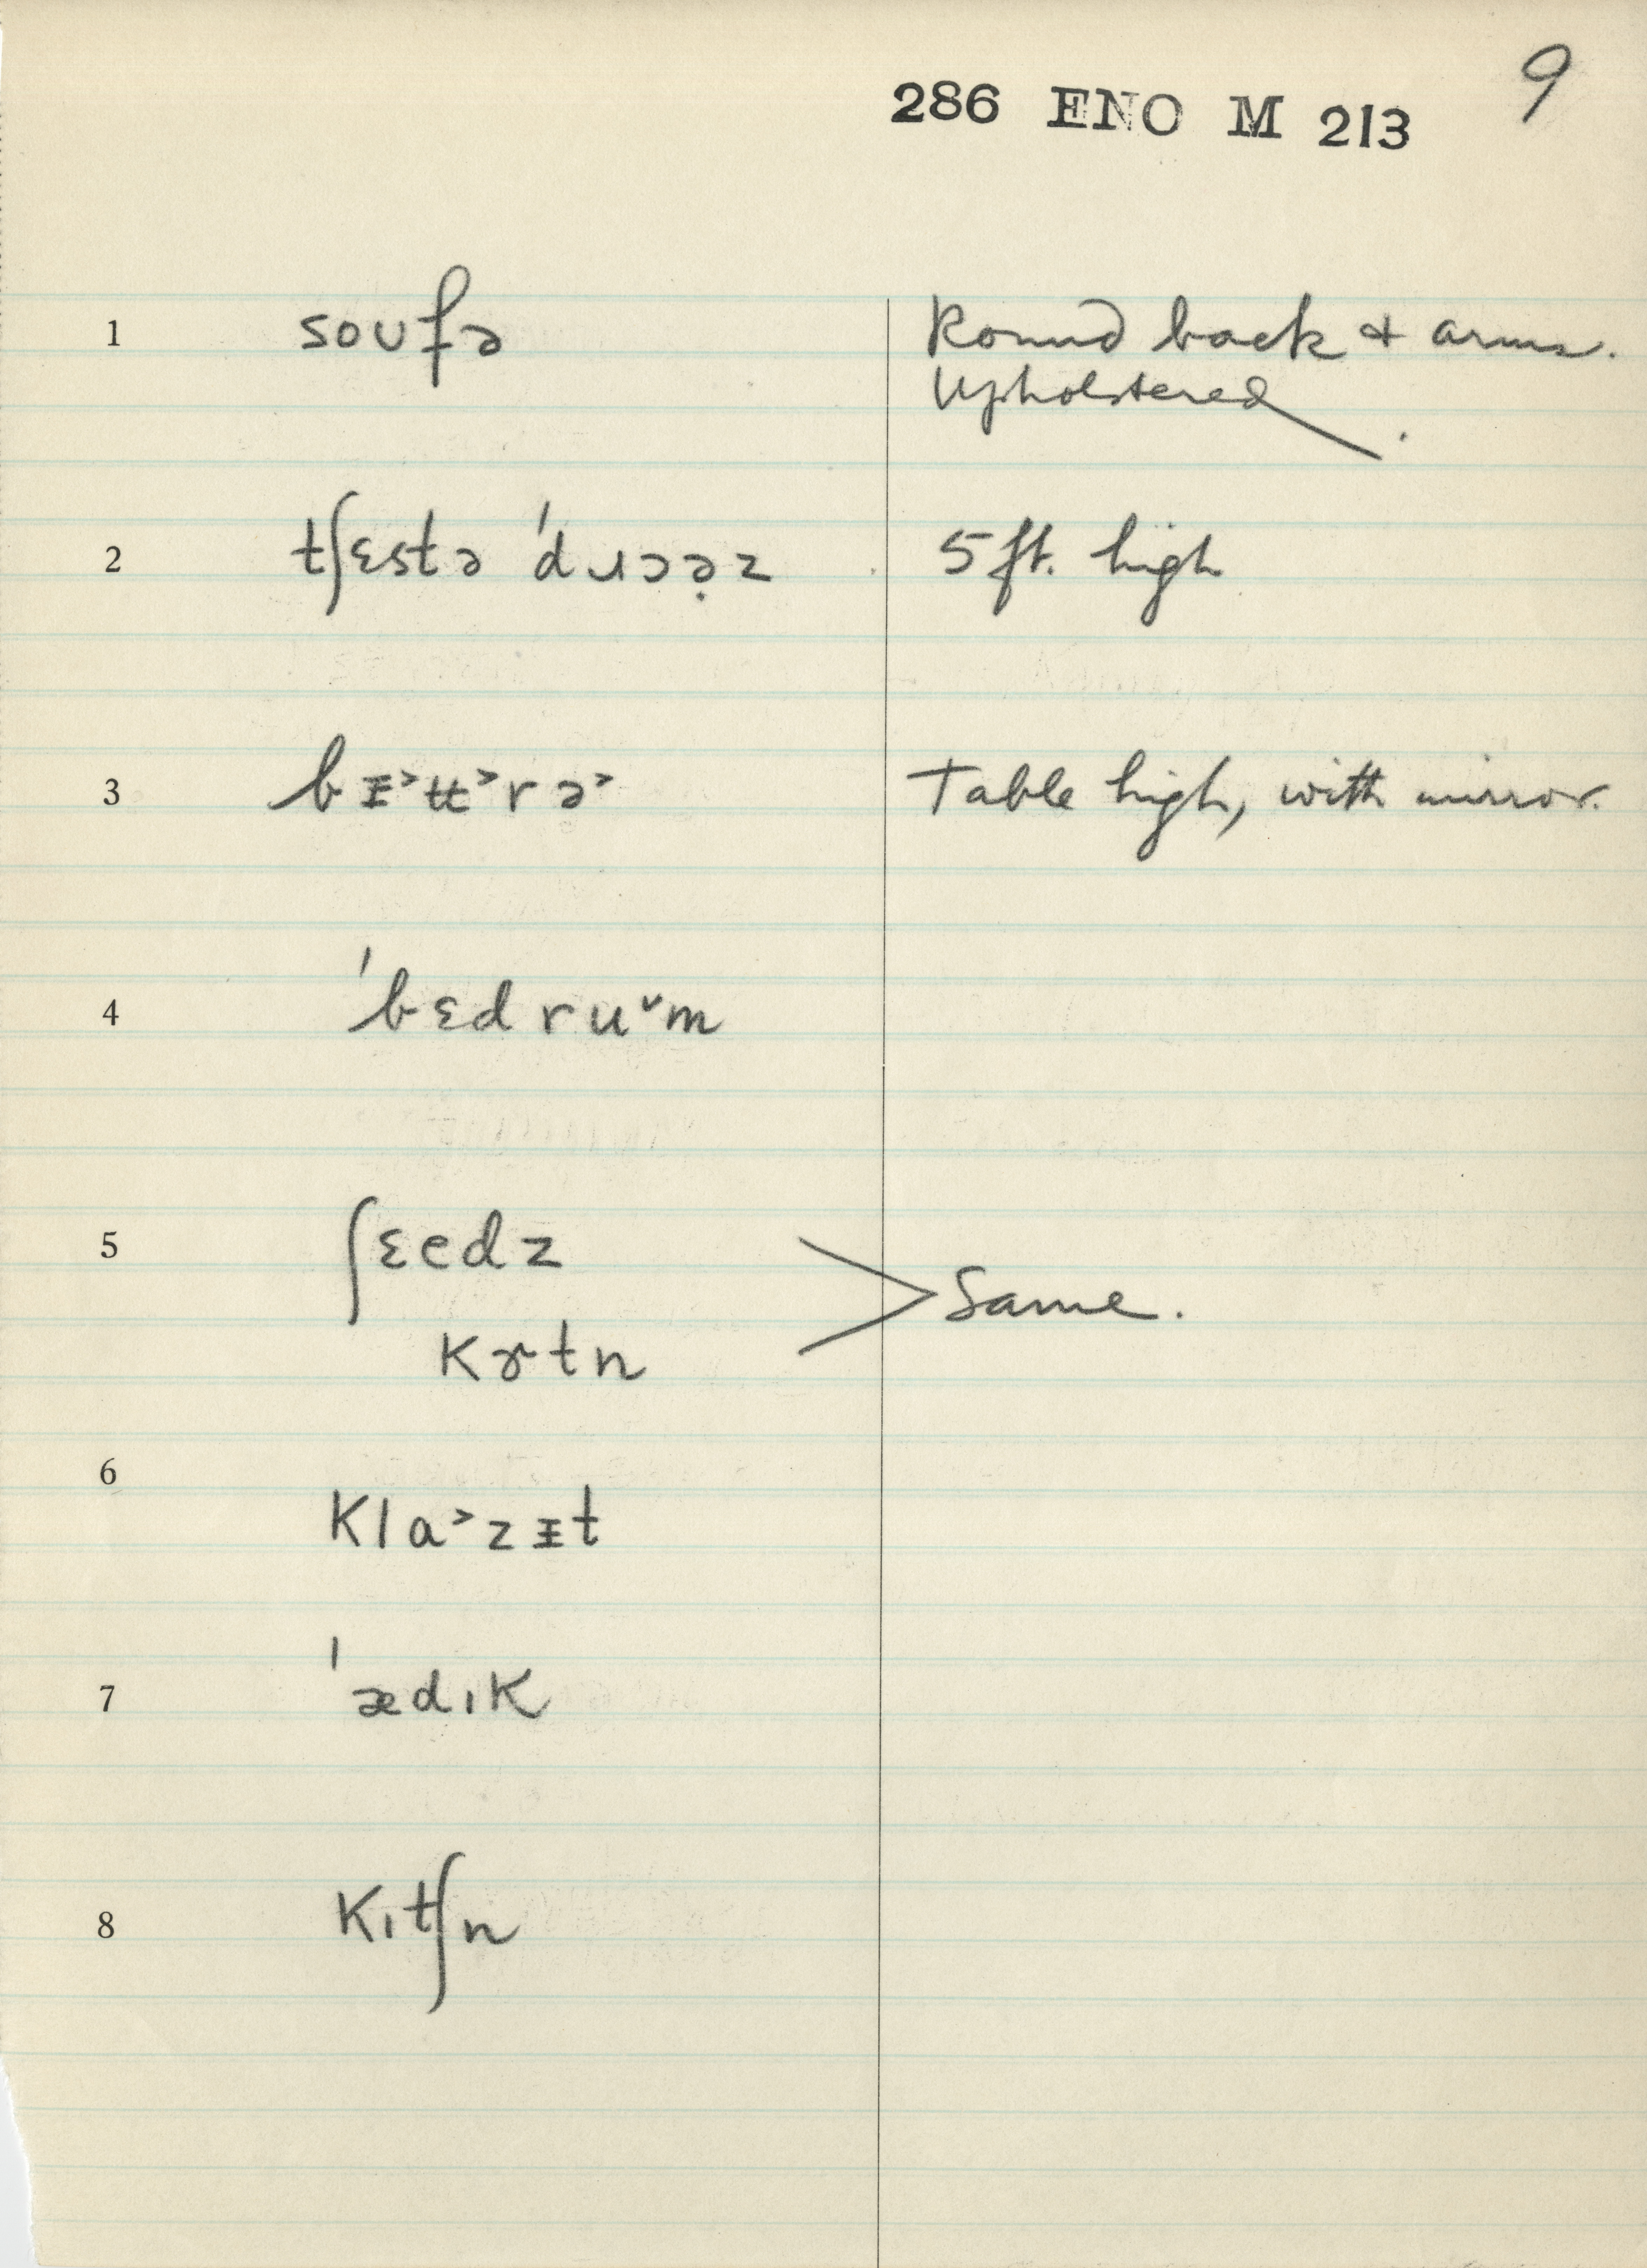 286 ENO M 213 9
1 soufə Round back & arms.
Upholstered.
2 tʃɛstə 'dɹɔə̣z 5 ft. high
3 bᵻ˃ʉ˃rə˃ Table high, with mirror.
4 'bɛdruˇm
5 ʃɛedz
kɚtn > Same.
6 kla˃zᵻt
7 'ædɪk
8 kɪtʃn